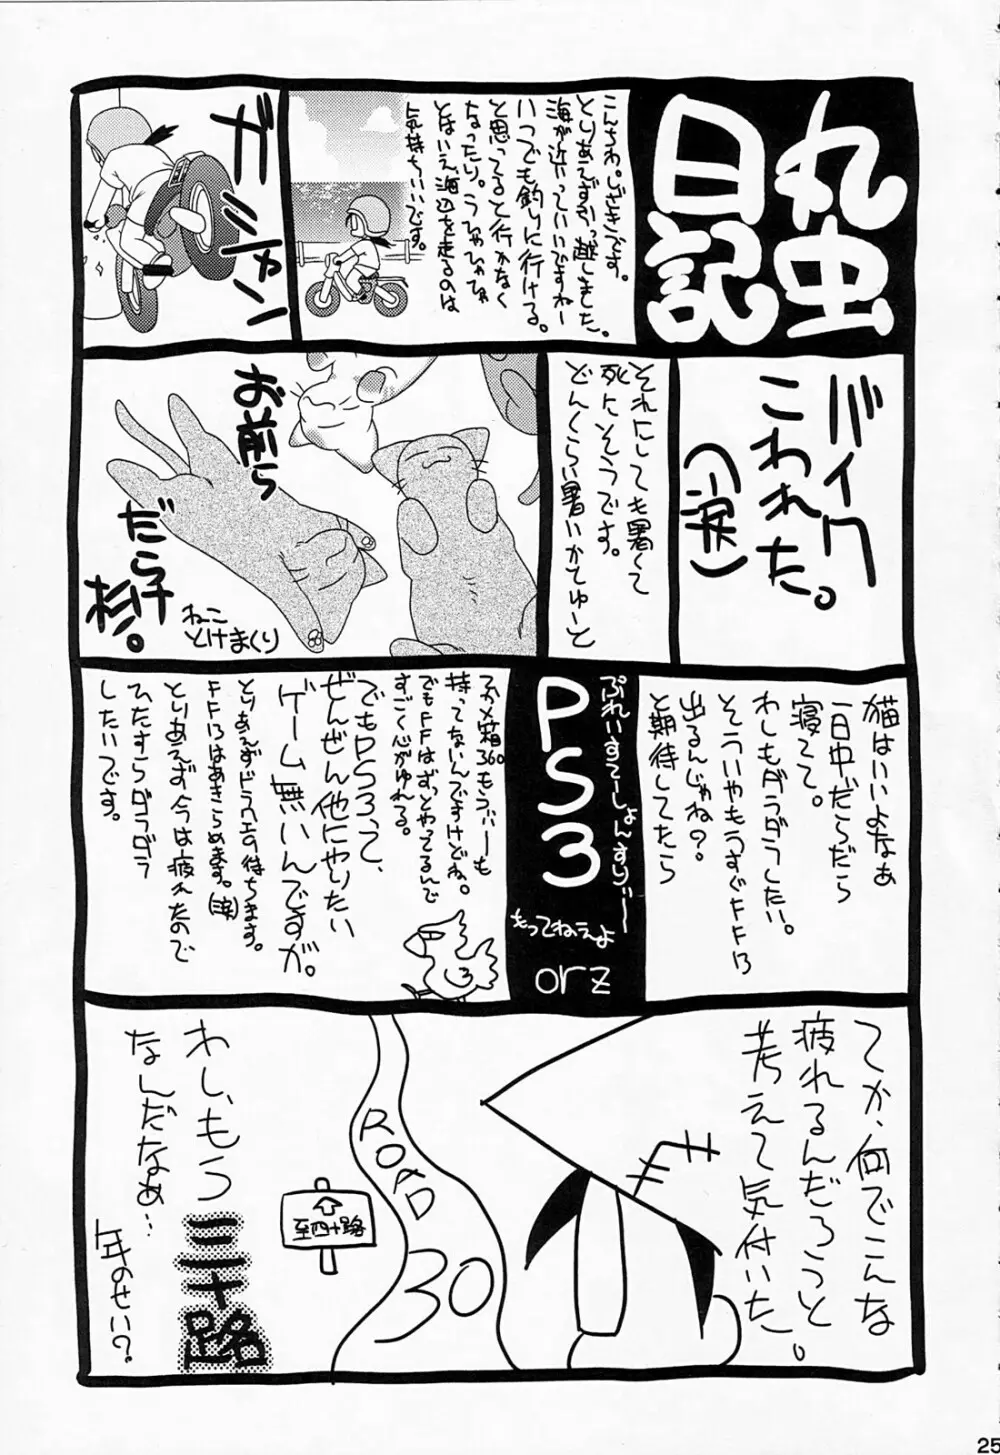 丸虫
日記
こんちわ。しざきです。
とりあえず引っ越しました。
海が近っていいですねー
いつでも釣りに行ける。
と思ってると行かなく
なったり。うひゃひゃひゃ
とはいえ海辺を走るのは
気持ちいいです。
ガシャン
バイク
こわれた。
(小涙)
それにしても暑くて
死にそうです。
どんくらい暑いかてゅーと
お前ら
だら子
杉。
ねこ
とけまくり
猫はいいよなぁ
一日中だらだら
寝てて。
わしもダラダラしたい。
そういやもうすぐFF13
出るんじゃね?
と期待してたら
ぷれいすてーしょんすりぃーー
PS3
もってねぇよ
orz
つか×箱360もうぃーも
持ってないんですけどね。
でもFFはずっとやってるんで
すごく心がゆれる。
でもPS3って、
ぜんぜん他にやりたい
ゲーム無いんですが。
とりあえずドラクエの待ちます。
FF13はあきらめます。(涙)
とりあえず今は疲れたので
ひたすらダラダラ
したいつです。
3
てか、何でこんな
疲れるんだろうと
考えて気付いた。
ROAD
30
至四十路
わし、もう
三十路
なんだなぁ…
年のせい?
25